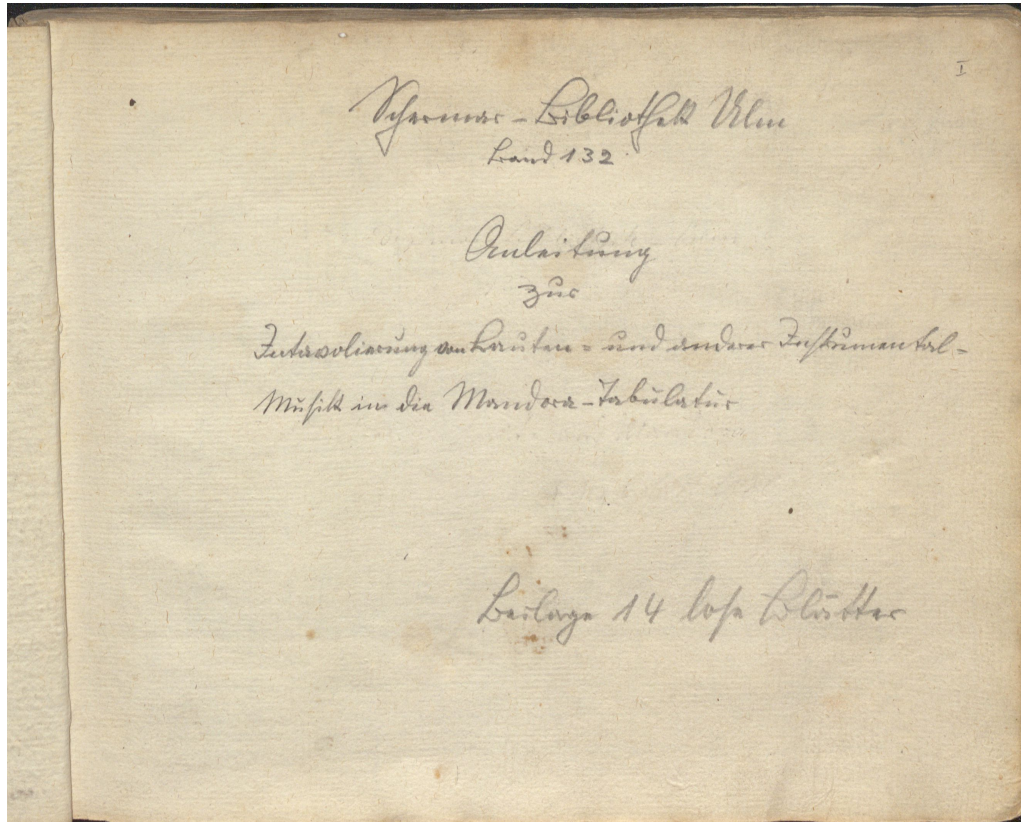 I
Schermar-Bibliothek Ulm
Band 132.
Anleitung
zur
Intavolierung von Lauten- und anderer Instrumental-
Musik in die Mandora-Tabulatur
Beilage 14 lose Blätter